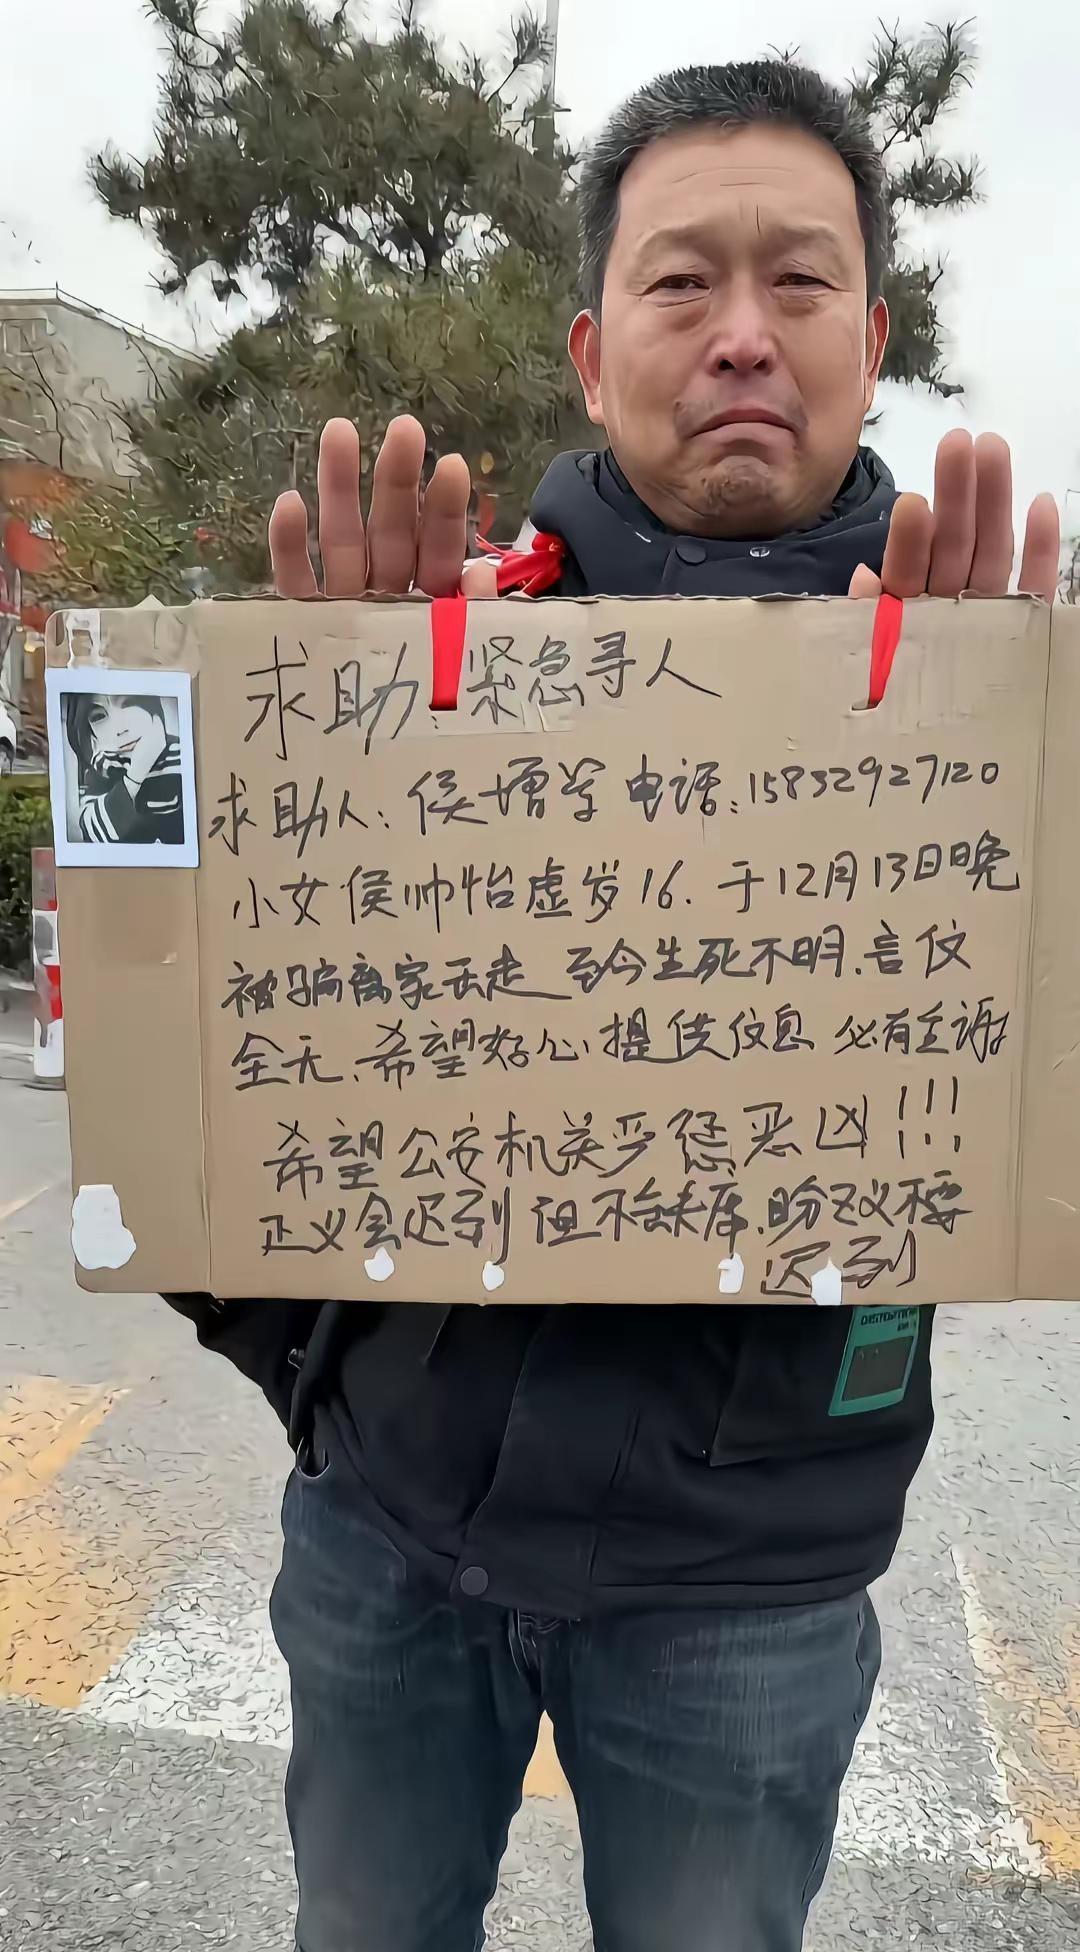 求助:紧急寻人
求助人:侯增学 电话:15832927120
小女侯帅怡虚岁16.于12月13日晚
被骗离家丢走 至今生死不明.音仪
全无.希望好心提供仪息 必有重谢
希望公安机关严惩恶凶!!!
正义会迟到但不会缺席.盼正义不要
迟到